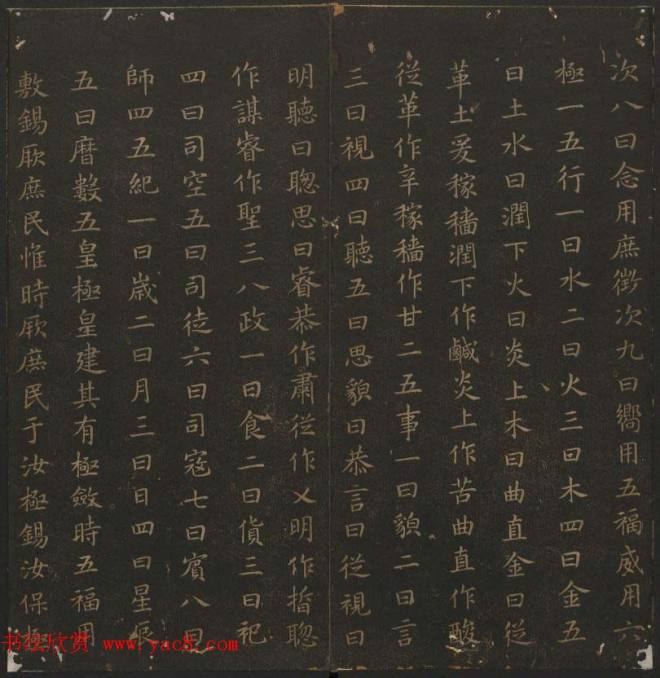 次八曰念用庶徵次九曰嚮用五福威用六
極一五行一曰水二曰火三曰木四曰金五
曰土水曰潤下火曰炎上木曰曲直金曰從
革土爰稼穡潤下作鹹炎上作苦曲直作酸
從革作辛稼穡作甘二五事一曰貌二曰言
三曰視四曰聽五曰思貌曰恭言曰從視曰
明聽曰聦思曰睿恭作肅從作乂明作晢聦
作謀睿作聖三八政一曰食二曰貨三曰祀
四曰司空五曰司徒六曰司寇七曰賓八曰
師四五紀一曰歲二曰月三曰日四曰星辰
五曰曆數五皇極皇建其有極斂時五福用
敷錫厥庶民惟時厥庶民于汝極錫汝保極
书法欣赏 www.yac8.com